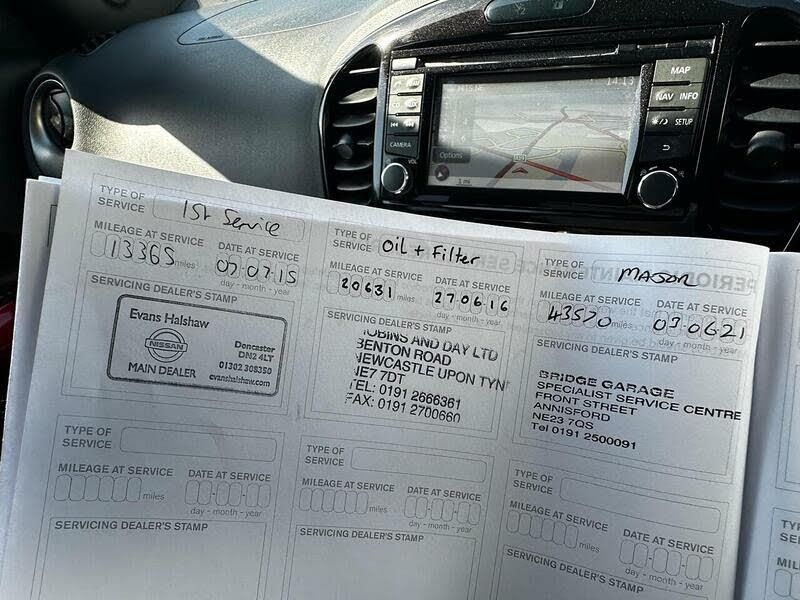 14:13
MAP
NAV INFO
SETUP
CAMERA
VOL
Options
1 mi
TYPE OF
SERVICE
1st Service
MILEAGE AT SERVICE
13365 miles
DATE AT SERVICE
07.07.15
day - month - year
SERVICING DEALER'S STAMP
Evans Halshaw
NISSAN
MAIN DEALER
Doncaster
DN2 4LT
01302 308350
evanshalshaw.com
TYPE OF
SERVICE
Oil + Filter
MILEAGE AT SERVICE
20631 miles
DATE AT SERVICE
27 06 16
day - month - year
SERVICING DEALER'S STAMP
AND DAY LTD
BENTON ROAD
NEWCASTLE UPON TYN
NE7 7DT
TEL: 0191 2666361
FAX: 0191 2700660
TYPE OF
SERVICE
MAJOR
MILEAGE AT SERVICE
43570 miles
DATE AT SERVICE
03.06.21
day - month - year
SERVICING DEALER'S STAMP
BRIDGE GARAGE
SPECIALIST SERVICE CENTRE
FRONT STREET
ANNISFORD
NE23 7QS
Tel 0191 2500091
TYPE OF
SERVICE
MILEAGE AT SERVICE
miles
DATE AT SERVICE
day - month - year
SERVICING DEALER'S STAMP
TYPE OF
SERVICE
MILEAGE AT SERVICE
miles
DATE AT SERVICE
day - month - year
SERVICING DEALER'S STAMP
TYPE OF
SERVICE
MILEAGE AT SERVICE
miles
DATE AT SERVICE
day - month - year
SERVICING DEALER'S STAMP
TYPE OF
SERVICE